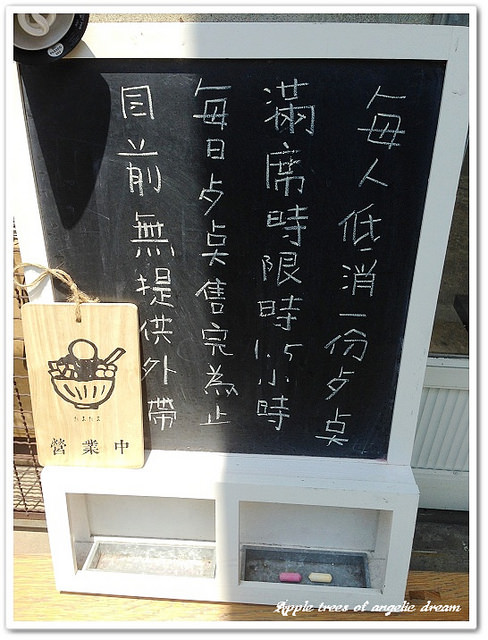 每人低消一份夕奌
滿席時限時1.5小時
每日夕奌售完為止
目前無提供外帶
たまたま
營業中
Apple trees of angelic dream